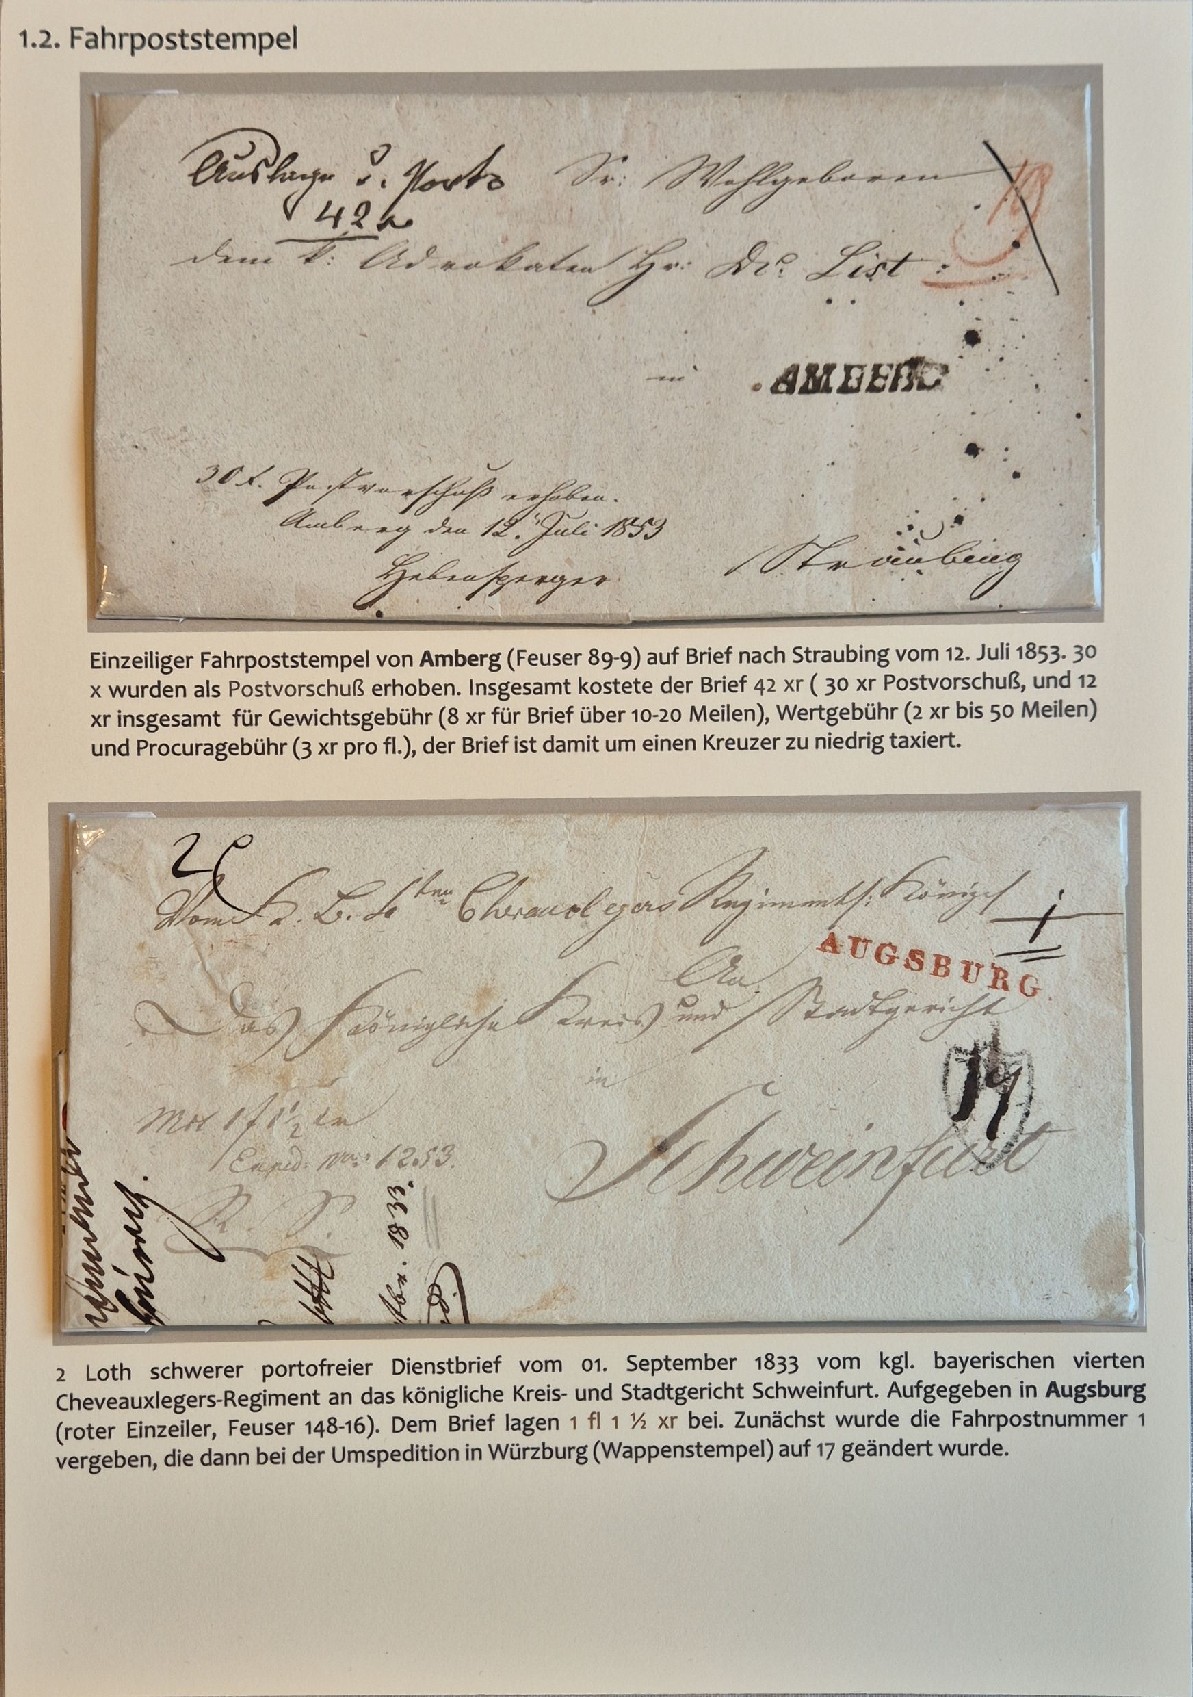 1.2. Fahrpoststempel
Auslage u. Porto
42 x
Sr: Wohlgeboren
dem k: Advokaten Hr: Dr. List.
in
AMBERG
30 x. Postvorschuß erhoben.
Amberg den 12. Juli 1853
Straubing
Einzeiliger Fahrpoststempel von Amberg (Feuser 89-9) auf Brief nach Straubing vom 12. Juli 1853. 30
x wurden als Postvorschuß erhoben. Insgesamt kostete der Brief 42 xr ( 30 xr Postvorschuß, und 12
xr insgesamt für Gewichtsgebühr (8 xr für Brief über 10-20 Meilen), Wertgebühr (2 xr bis 50 Meilen)
und Procuragebühr (3 xr pro fl.), der Brief ist damit um einen Kreuzer zu niedrig taxiert.
Vom K. B. 4ten Chevauxlegers Regiment: König
1
AUGSBURG
An
Das Königliche Kreis und Stadtgericht
in
17
Schweinfurt
Mit 1 f 1 ½ xr
Exped: No: 1253.
R. S.
1833.
2 Loth schwerer portofreier Dienstbrief vom 01. September 1833 vom kgl. bayerischen vierten
Cheveauxlegers-Regiment an das königliche Kreis- und Stadtgericht Schweinfurt. Aufgegeben in Augsburg
(roter Einzeiler, Feuser 148-16). Dem Brief lagen 1 fl 1 ½ xr bei. Zunächst wurde die Fahrpostnummer 1
vergeben, die dann bei der Umspedition in Würzburg (Wappenstempel) auf 17 geändert wurde.